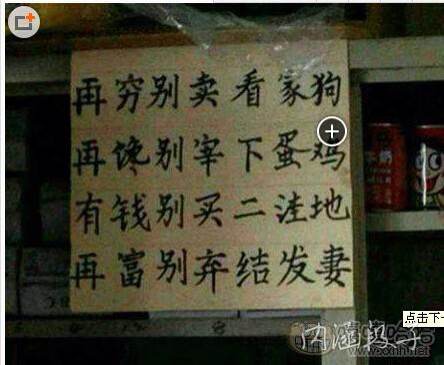 再穷别卖看家狗
再馋别宰下蛋鸡
有钱别买二洼地
再富别弃结发妻
牛奶
点击下一
内涵段子